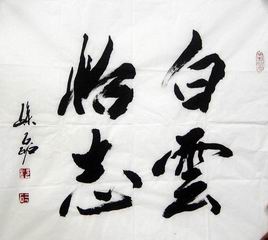 白雲
怡志